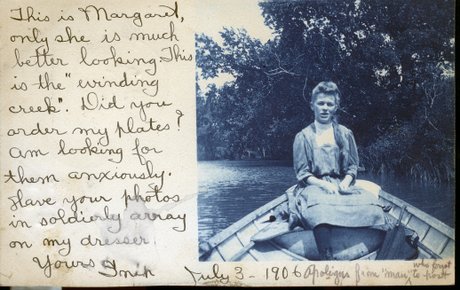 This is Margaret,
only she is much
better looking. This
is the "winding
creek". Did you
order my plates?
Am looking for
them anxiously.
Have your photos
in soldierly array
on my dresser
Yours
July 3 - 1906
from "man" to